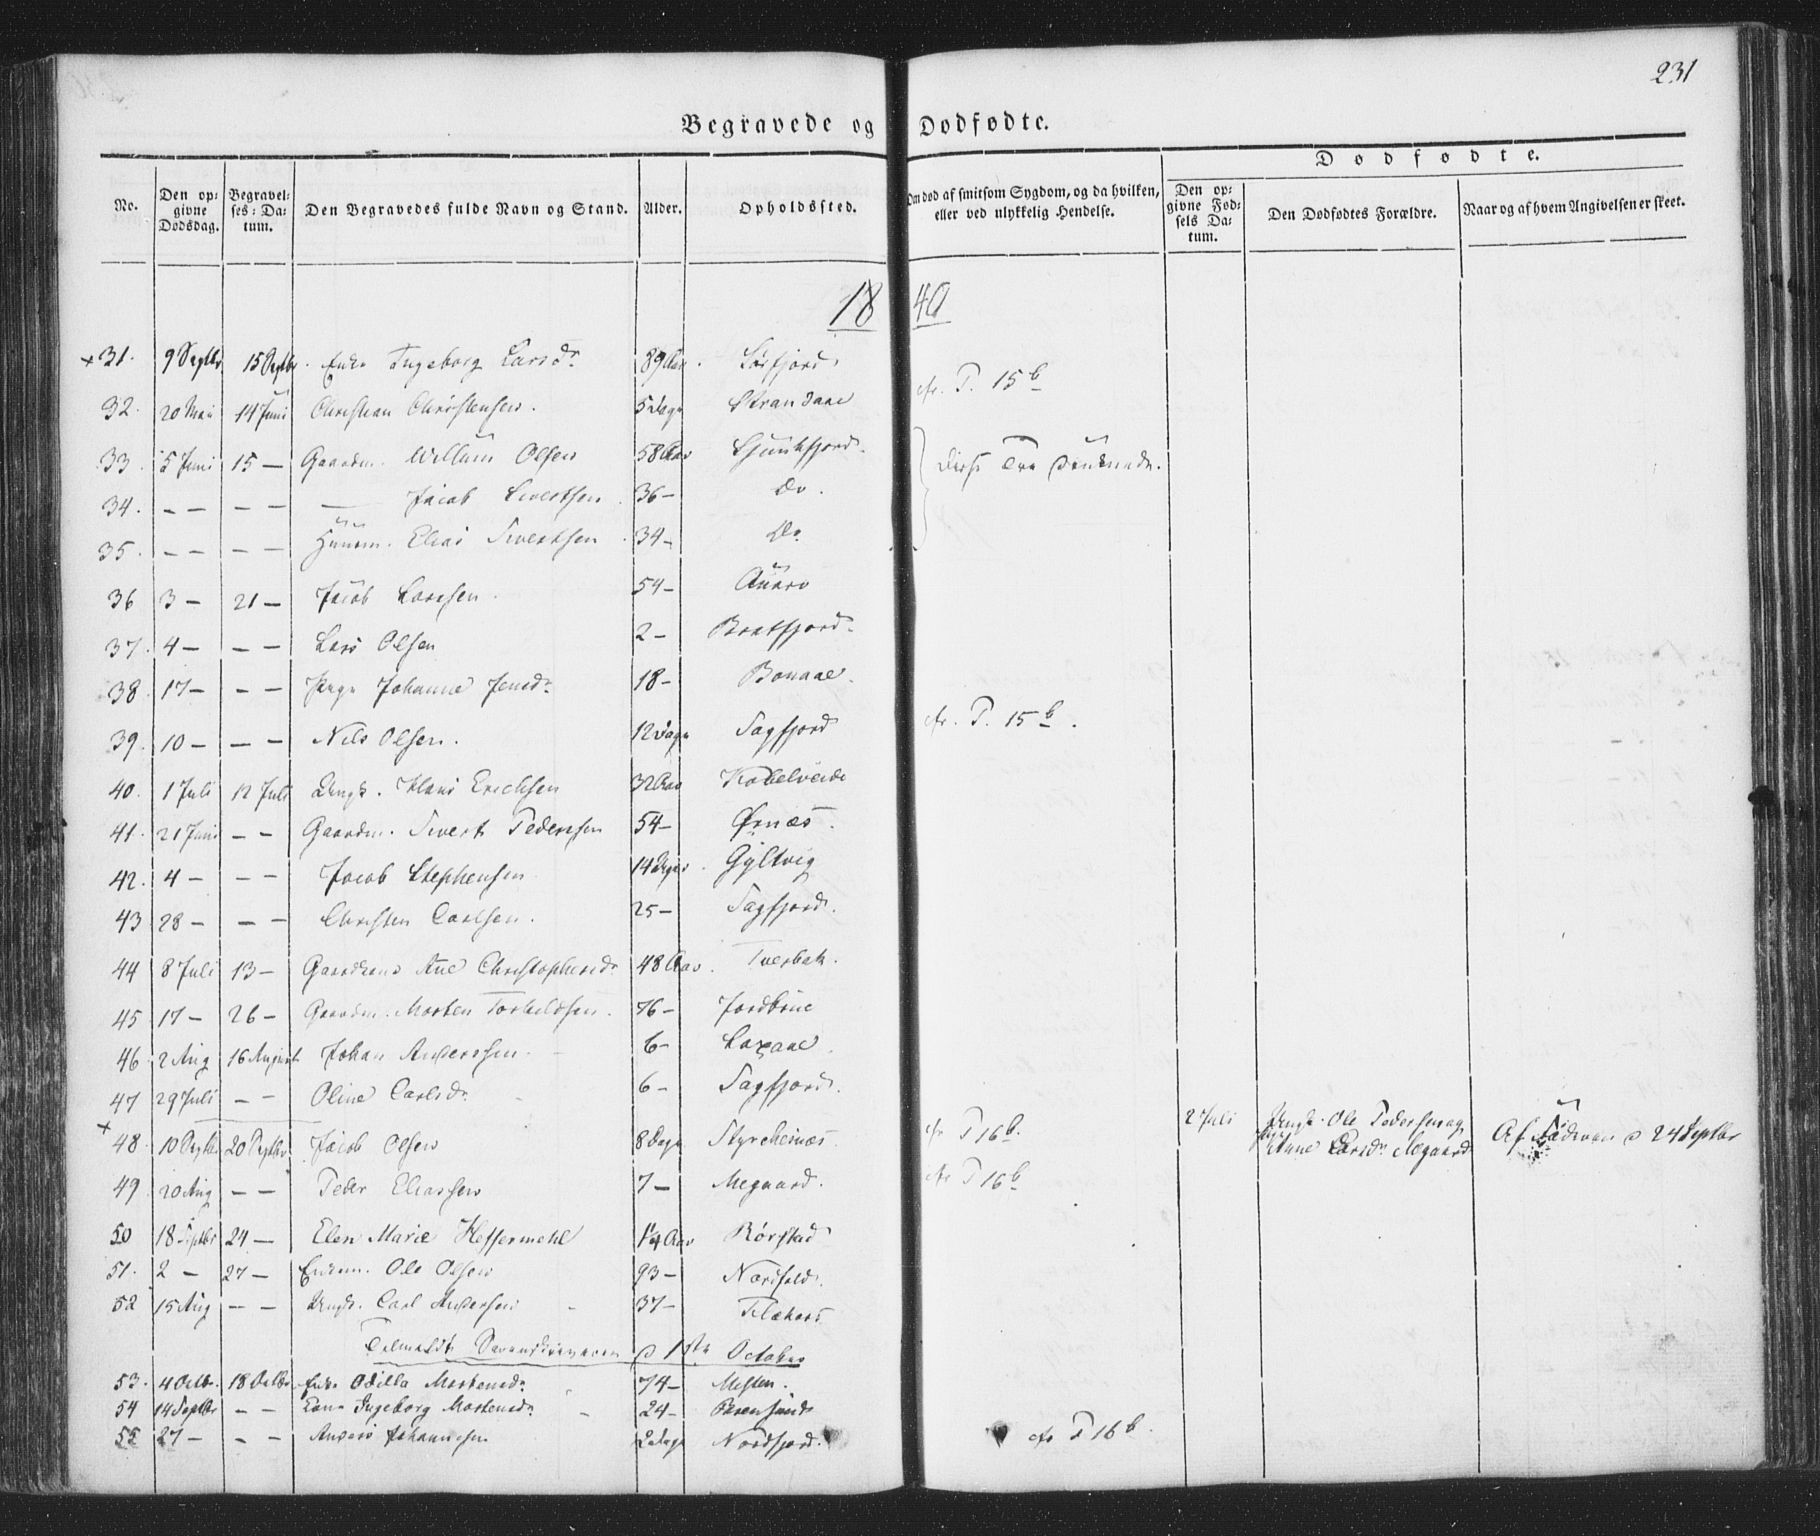 231
Begravede og Dødfødte.
Dødfødte.
No.
Den opgivne Dødsdag.
Begravelses-Datum.
Den Begravedes fulde Navn og Stand.
Alder.
Opholdssted.
Om død af smitsom Sygdom, og da hvilken, eller ved ulykkelig Hendelse.
Den opgivne Fødsels Datum.
Den Dødfødtes Forældre.
Naar og af hvem Angivelsen er skeet.
1840
31. 9 Septbr 15 Septbr. Enke Ingeborg Larsd. 89 Aar. Sørfjord.
32. 20 Mai 14 Juni Christian Christensen. 5 Dage Strandaae cfr. P. 15 b
33. 5 Juni 15 — Gaardm. Willum Olsen 58 Aar Ljunkfjord. Disse Tre druknede.
34. — — — — — Jacob Sivertsen 36 — Do.
35. — — — — Huusm. Elias Sivertsen 34 — Do
36 3 — 21 — Jacob Larssen. 54 —
37. 4 — — — Lars Olsen 2 — Bratfjord.
38. 17 — — — Pige Johanne Jensd. 18 — Bonaae.
39. 10 — — — Nils Olsen. 12 Dage Sagfjord cfr. P. 15 b.
40. 1 Juli 12 Juli Ungk. Klaus Erichsen 32 Aar Kobelveide
41. 21 Juni — — Gaardm. Sivert Pedersen 54 — Ørnæs.
42. 4 — — — Jacob Stephensen 14 Dage. Gyltvig
43 28 — — — Christen Carlsen. 25 — Sagfjord.
44 8 Juli 13 — Gaardkone Ane Christophersd. 48 Aar. Tverbak.
45 17 — 26 — Gaardm. Morten Torkeldsen. 76 — Jordbrue
46 2 Aug 16 August Johan Anderssen. 6 — Laxaae
47 29 Juli — — Oline Carlsd. 6 — Sagfjord.
48. 10 Septbr 20 Septbr Jacob Olsen 8 Dage Styrcheinæs. cfr P 16 b. 2 Juli Ungk. Ole Pedersen og Pige Anne Larsd. Megaard Af Faderen d 24 Septbr
49 20 Aug — — Peder Eliassen 7 — Megaard. cfr P 16 b
50 18 Septbr 24 — Elen Marie Heffermehl 1/4 Aar Rørstad
51. 2 — 27 — Enkem. Ole Olsen 93 — Nordfold.
52 15 Aug — — Ungk. Carl Andersen 37 —
d 1ste October
53. 4 Octbr. 18 Octbr Enke Odilla Mortensd. 74 — Misten.
54 14 Septbr — — Kone Ingeborg Mortensd. 24 — Brensund
55 27 — — — Anders Johannesen 2 Dage Nordfjord. cfr P 16 b.